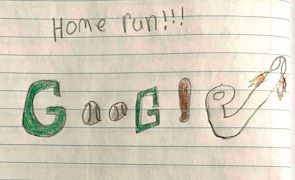 Home run!!!
GooGle